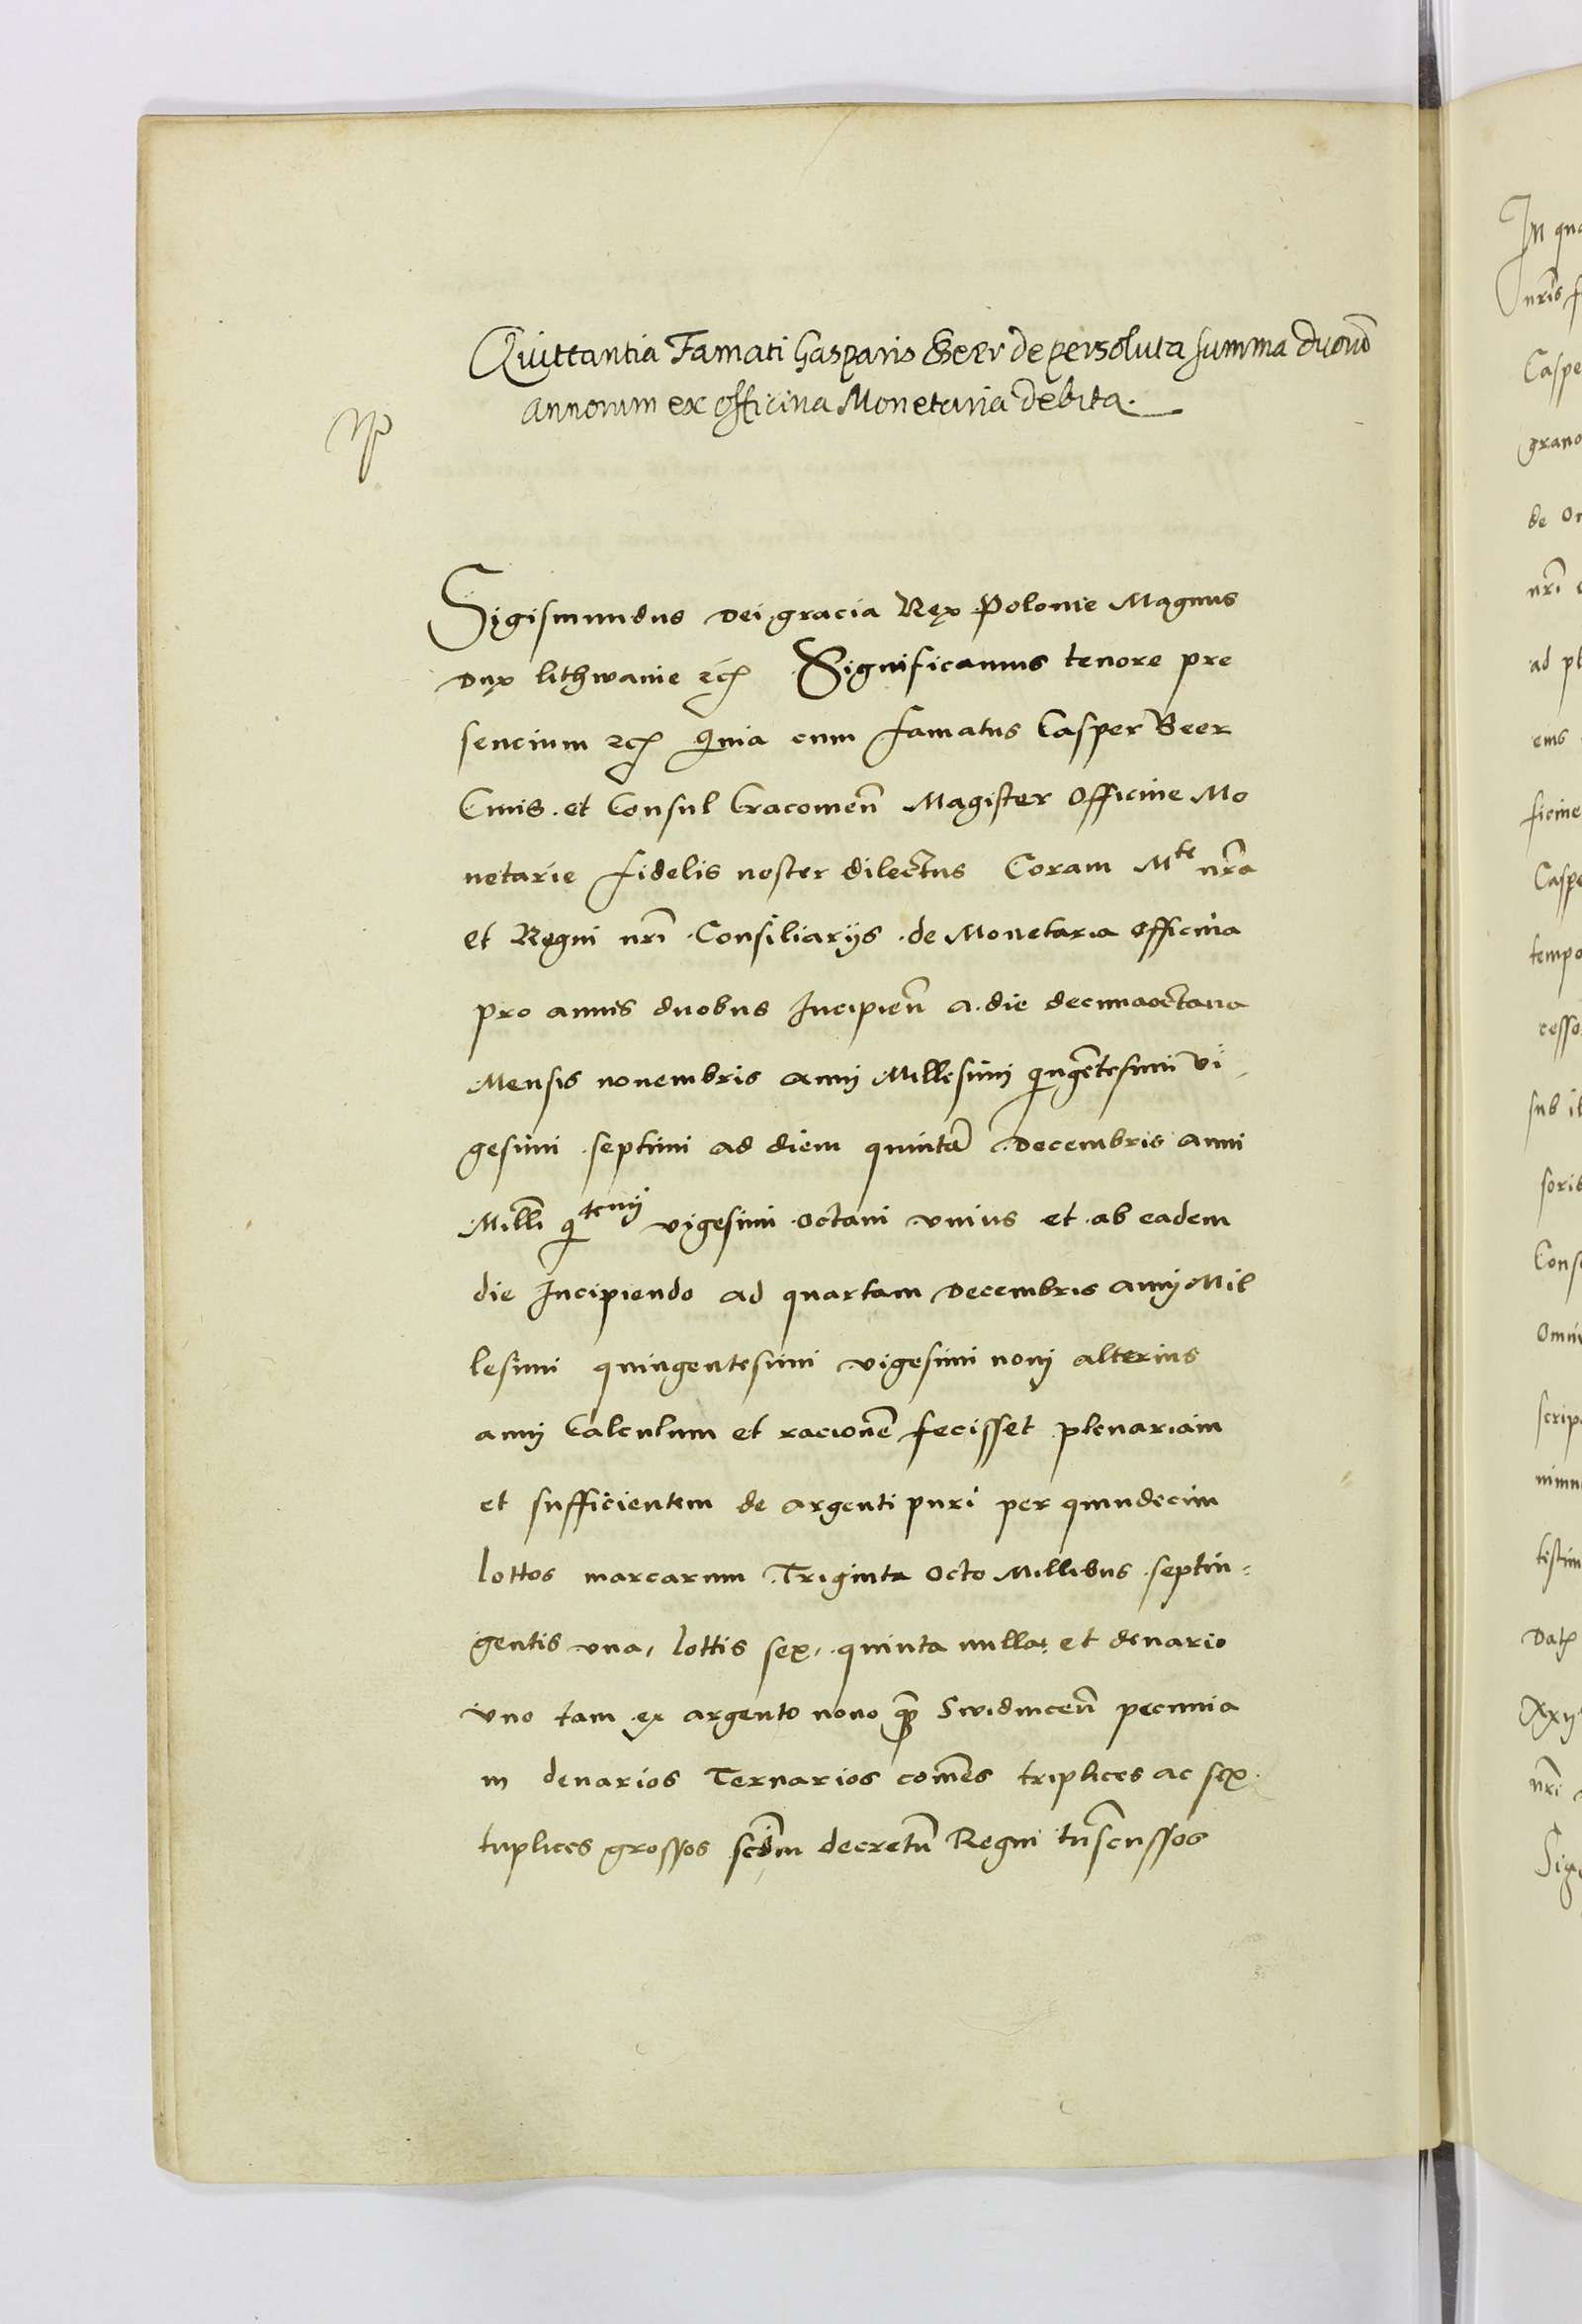 Quittantia Famati Gasparis Beer de persoluta summa duorū
annorum ex officina Monetaria debita.
Sigismundus dei gracia Rex Polonie Magnus
dux lithwanie ꝛcʒ Significamus tenore pre
sencium ꝛcʒ Quia cum famatus Casper Beer
Civis et Consul Cracovieñ Magister Officine Mo
netarie fidelis noster dilectus Coram Mte nr̃a
et Regni nr̃i Consiliarijs de Monetaria officina
pro annis duobus Incipieñ a die decimaoctava
Mensis novembris anni Millesimi qingẽtesimi vi
gesimi septimi ad diem quintã decembris anni
Milli qtemj vigesimi octavi unius et ab eadem
die Incipiendo ad quartam decembris annj Mil
lesimi quingentesimi vigesimi nonj alterius
annj Calculum et racionẽ fecisset plenariam
et sufficientem de argenti puri per quindecim
lottos marcarum Triginta octo Millibus septin=
gentis una, lottis sex, quinta nulla et denario
uno tam ex argento novo q̃ Swidniceñ pecunia
in denarios Ternarios com̃es triplices ac sex
tuplices grossos scd̃m decretũ Regni cussos
In
nr̃is
Caspe
grano
de
nr̃i
ad
ficine
Caspe
tempo
cesso
sub
Cons
Omni
scrip
Datʒ
nr̃i